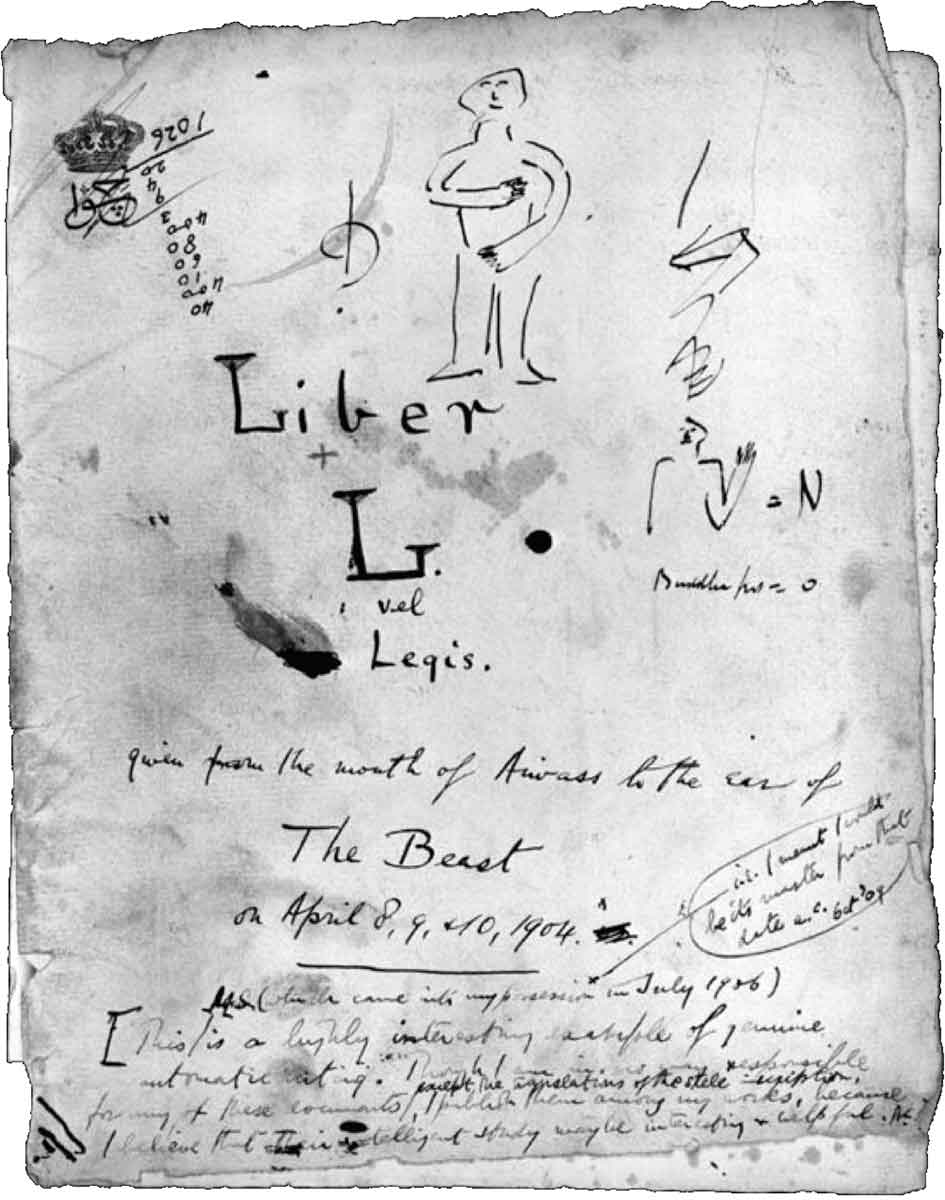 1026
20
4
9
3
400
80
6
10
400
40
Liber
+
L.
vel
Legis.
= N
Buddha = 0
given from the mouth of Aiwass to the ear of
The Beast
on April 8, 9, & 10, 1904.
i.e. I meant I would
be its master from that
date a.c. Oct '09
MS. (which came into my possession in July 1906)
[This is a highly interesting example of genuine
automatic writing. Though I am in no way responsible
except the translations of the stele inscriptions,
for any of these documents, I publish them among my works, because
I believe that their intelligent study may be interesting & helpful. A.C.